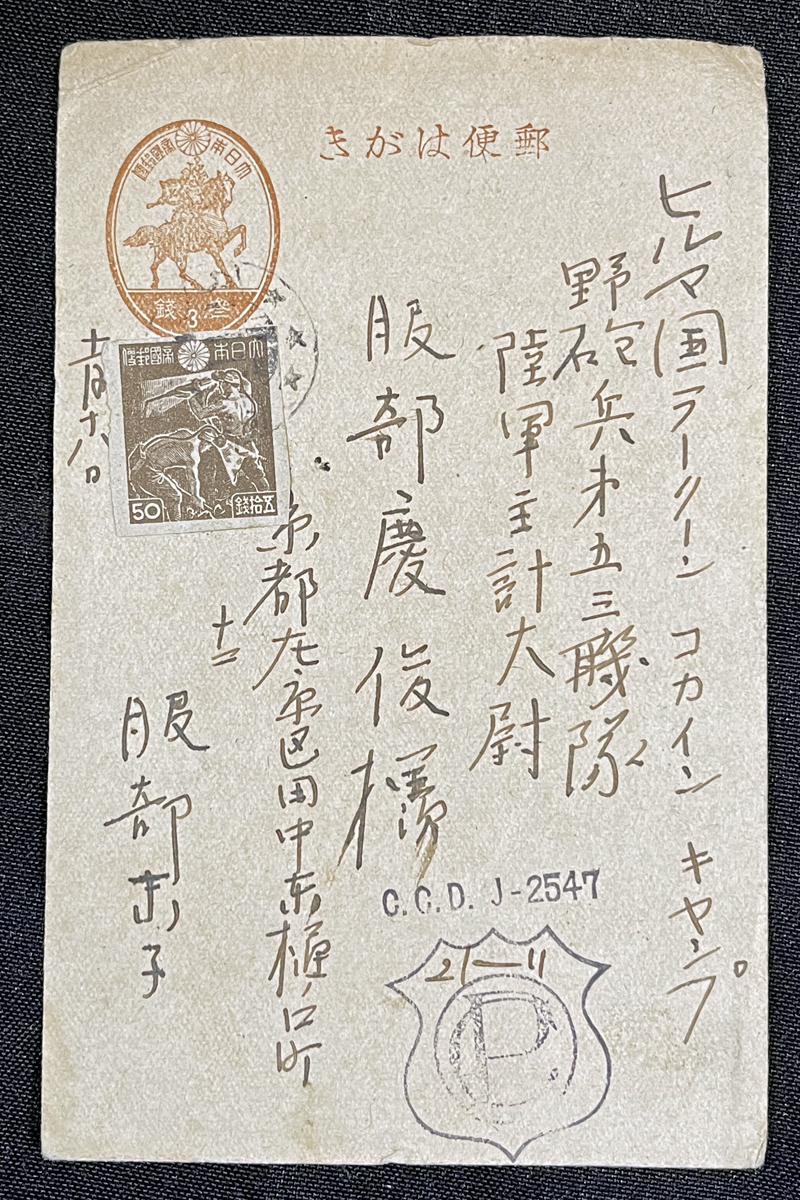 郵便はがき
大日本帝國郵便
3
錢
大日本帝國郵便
50
五拾錢
ビルマ国ラークーン コカイン キャンプ
野砲兵第五三聯隊
陸軍主計大尉
服部慶俊様
京都左京区田中東樋ノ口町
十二
服部
子
十一月十八日
C.C.D. J-2547
21-11
P.